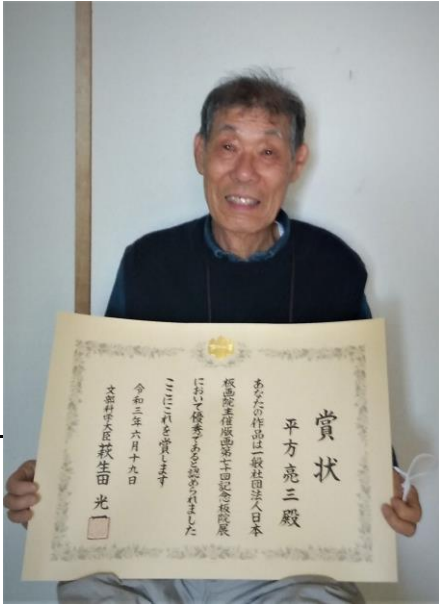 賞状
平方亮三殿
あなたの作品は一般社団法人日本
板画院主催版画第七十回記念板院展
において優秀であると認められました
ここにこれを賞します
令和三年六月十九日
文部科学大臣 萩生田光一